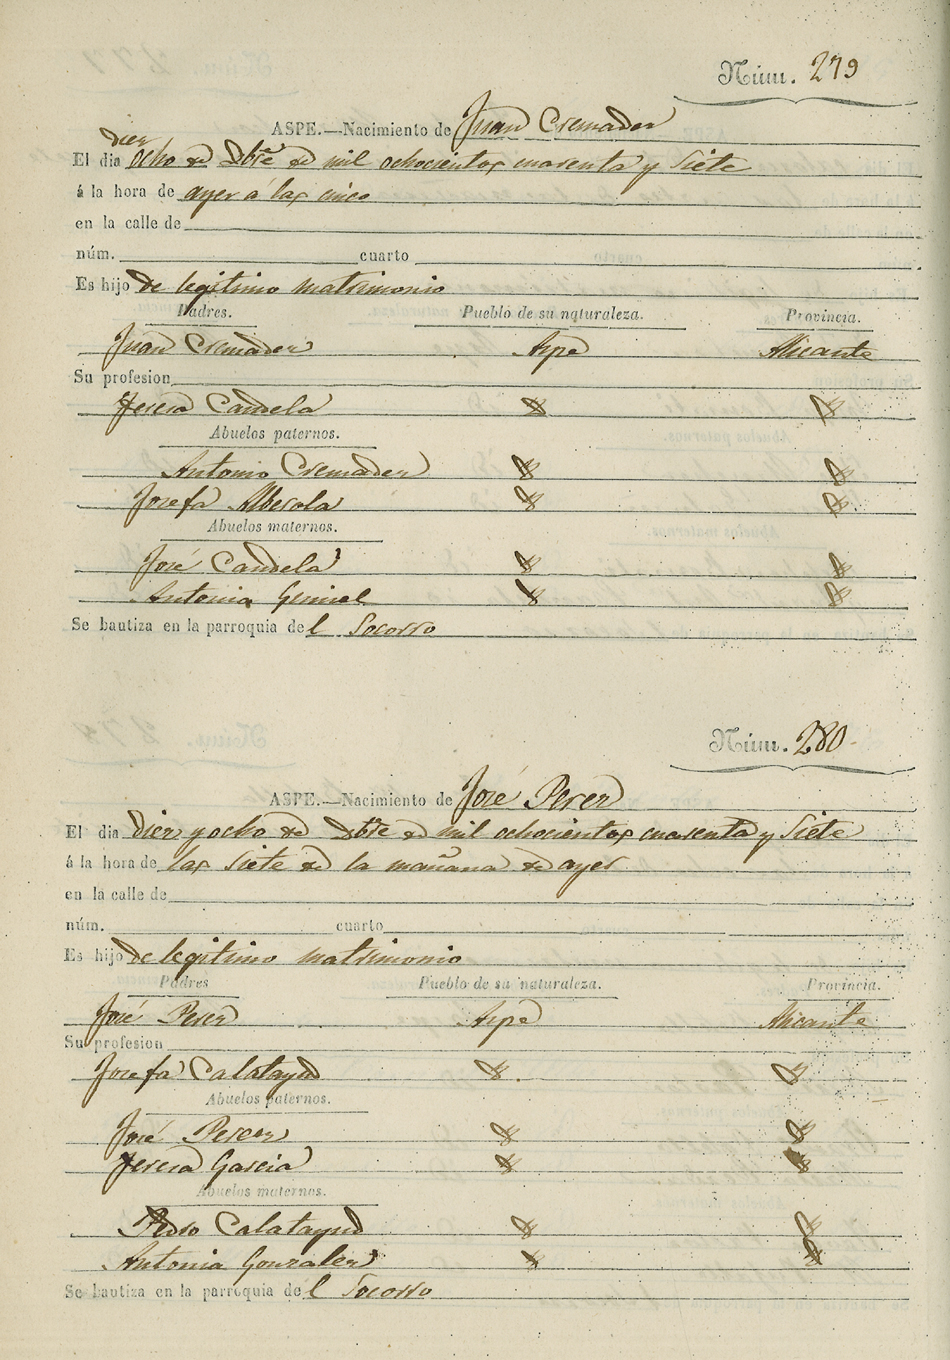 Núm. 279
ASPE.—Nacimiento de Juan Cremades
diez
El dia ocho de Dbre de mil ochocientos cuarenta y Siete
á la hora de ayer á las cinco
en la calle de
núm. cuarto
Es hijo de legitimo matrimonio
Padres. Pueblo de su naturaleza. Provincia.
Juan Cremades Aspe Alicante
Su profesion
Teresa Candela
Abuelos paternos.
Antonio Cremades
Josefa Alberola
Abuelos maternos.
José Candela
Antonia
Se bautiza en la parroquia del Socorro
Núm. 280
ASPE.—Nacimiento de José Perez
El dia diez y ocho de Dbre de mil ochocientos cuarenta y Siete
á la hora de las Siete de la mañana de ayer
en la calle de
núm. cuarto
Es hijo de legitimo matrimonio
Padres Pueblo de su naturaleza. Provincia.
José Perez Aspe Alicante
Su profesion
Josefa Calatayud
Abuelos paternos.
José Perez
Teresa Garcia
Abuelos maternos.
Pedro Calatayud
Antonia Gonzalez
Se bautiza en la parroquia del Socorro